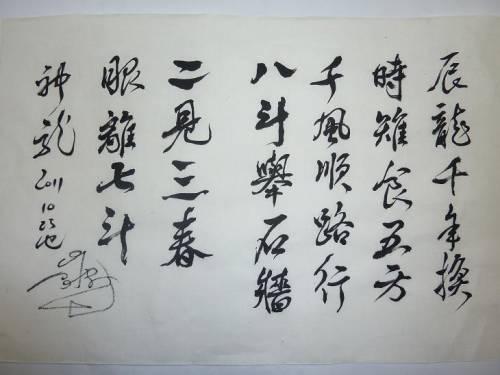 辰龍千年換
時雞食五方
千風順路行
八斗舉石牆
二見三春
眼離七斗
神龍
2011 10 25